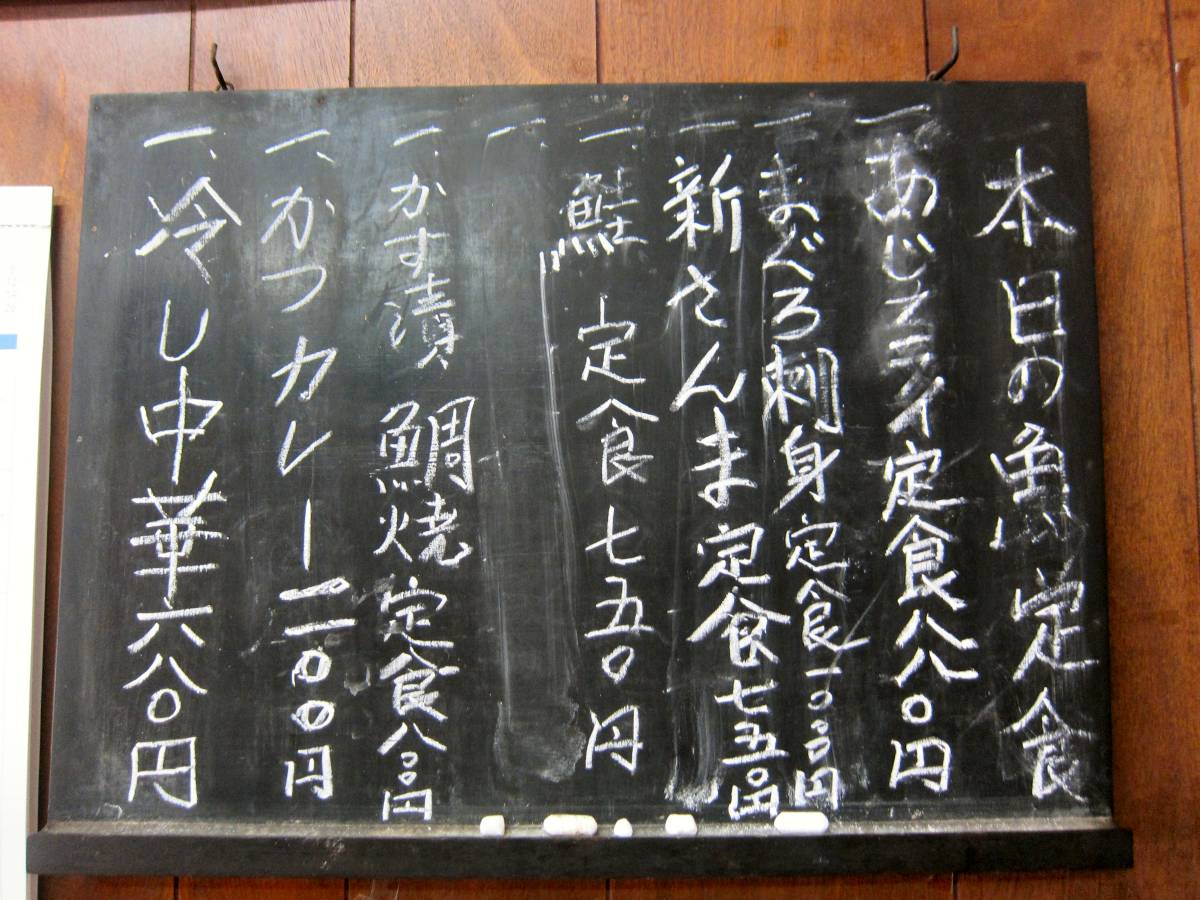 本日の魚定食
一あじフライ定食八八〇円
一まぐろ刺身定食一〇〇〇円
一新さんま定食七五〇円
一、鮭定食七五〇円
一、
一、かす漬鯛焼定食八〇〇円
一、かつカレー一一〇〇円
一、冷し中華六八〇円